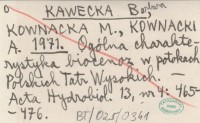 KAWECKA Barbara
KOWNACKA M., KOWNACKI
A. 1971. Ogólna charakte-
rystyka biocenoz w potokach
Polskich Tatr Wysokich. —
Acta Hydrobiol. 13, nr 4: 465-
-476.
BT/025/0341